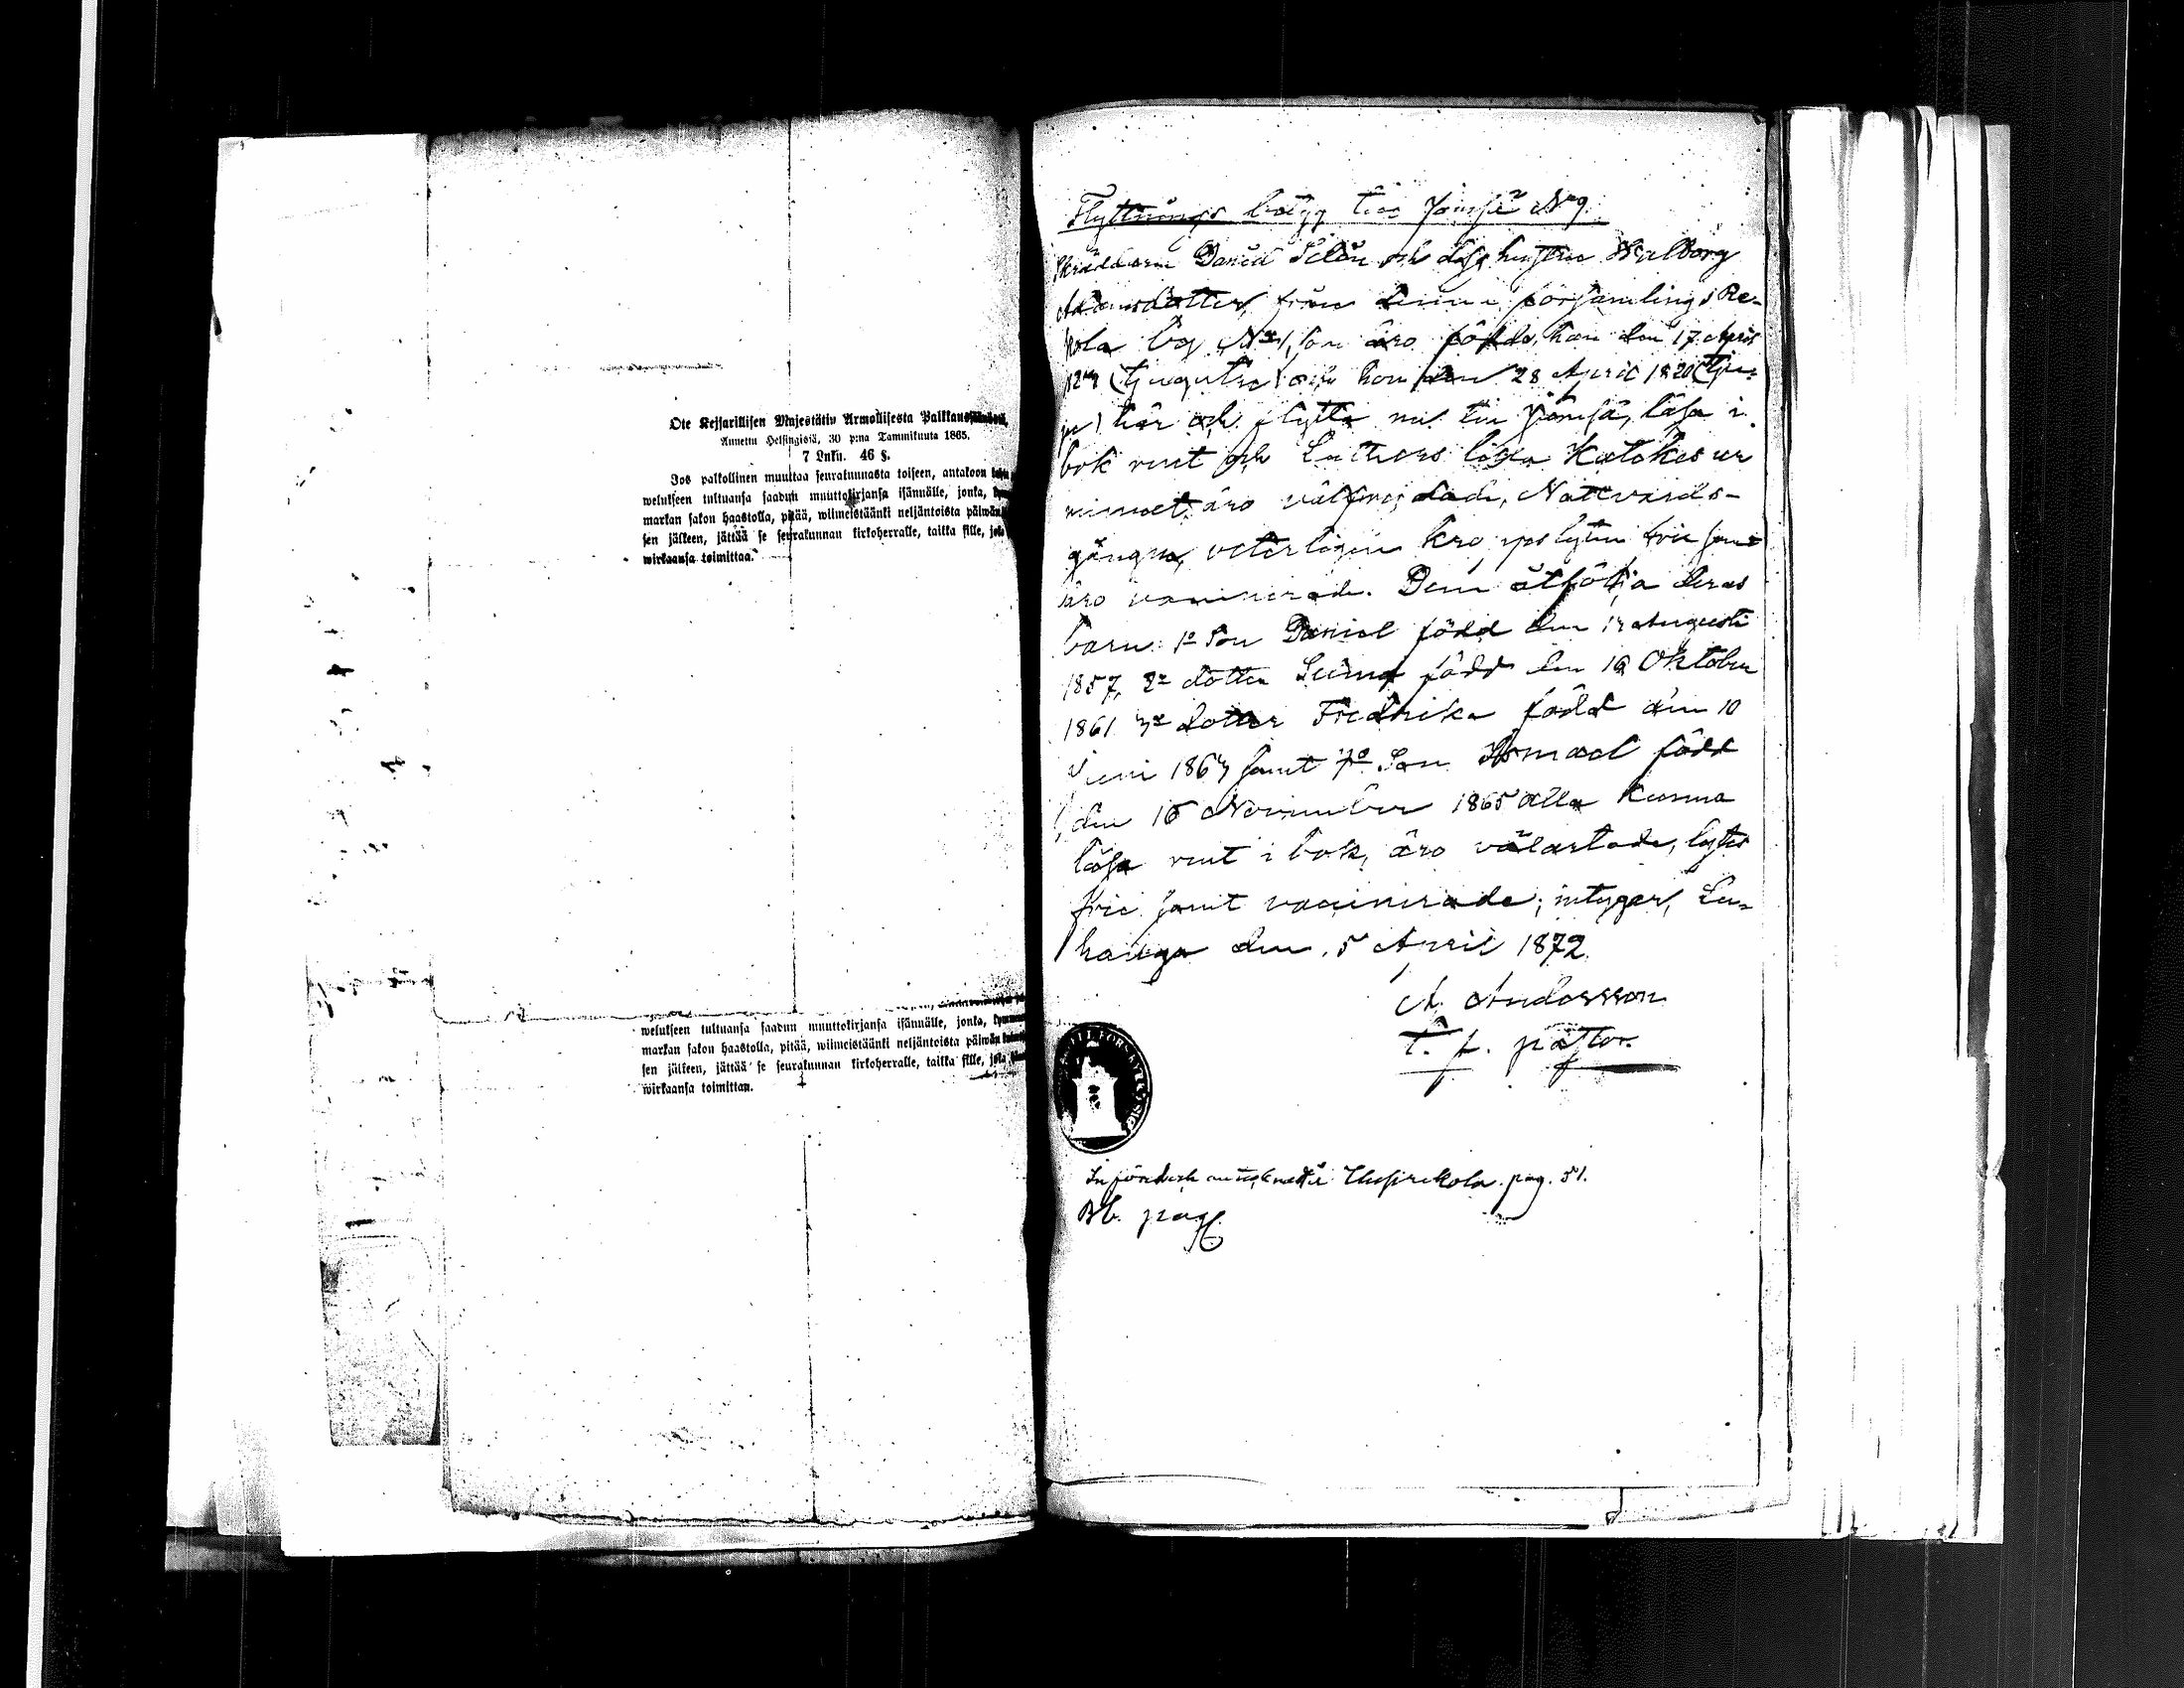 Ote Keisarillisen Majestätin Armollisesta Palkkaussäännöstä,
Annettu Helsingissä, 30 p:nä Tammikuuta 1865.
7 Luku. 46 §.
Jos palkollinen muuttaa seurakunnasta toiseen, antakoon
welukseen tultuansa saadun muuttokirjansa isännälle, jonka,
markan sakon haastolla, pitää, wiimeistäänki neljäntoista päiwän
sen jälkeen, jättää se seurakunnan kirkoherralle, taikka sille, joka
wirkaansa toimittaa.
welukseen tultuansa saadun muuttokirjansa isännälle, jonka, kymmenen
markan sakon haastolla, pitää, wiimeistäänki neljäntoista päiwän
sen jälkeen, jättää se seurakunnan kirkoherralle, taikka sille, joka
wirkaansa toimittaa.
Flyttnings betyg till Jämsä No 9.
Skräddaren Daniel och dess hustru Walborg
Adamsdotter, från denna församlings Re-
kola by No 1, som äro födde, han den 17 April
och hon den 28 April 1820 (tju-
go) här och flytta nu till Jämsä, läsa i
bok rent och Luthers lilla Katekes ur
minnet, äro välfrejdade, Nattvards-
gångna, veterligen kropslyten frie samt
äro vaccinerade. Dem åtfölja deras
barn: 1o Son Daniel född den Augusti
1857, 2o dotter född den 16 Oktober
1861 3o dotter Fredrika född den 10
Juni 1863 samt 4o Son Ismael född
den 16 November 1865 alla kunna
läsa rent i bok, äro välartade, lytes
frie samt vaccinerade; intygar, Lu-
hanga den 5 April 1872.
A. Andersson
t. f. pastor.
Införde och antecknade i pag. 51.